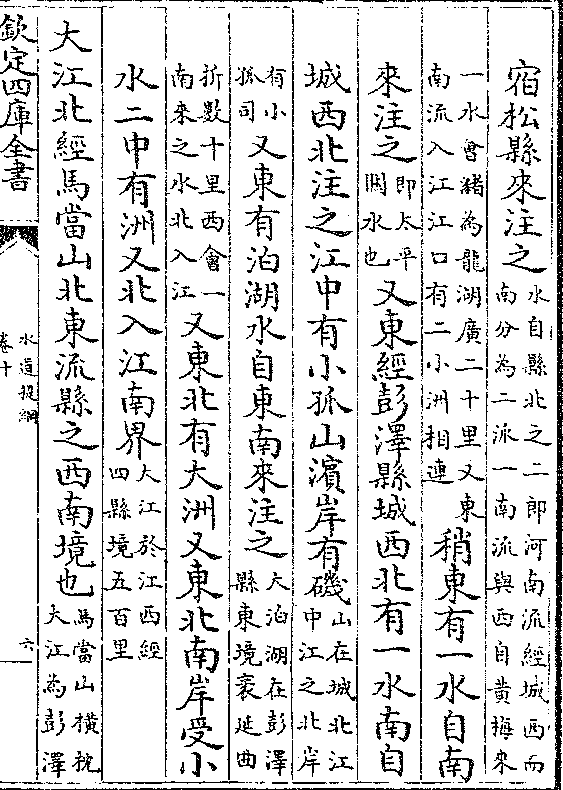 宿松縣來注之水自縣北之二郎河南流經城西而南分為二派一南流與西自黄梅來
一水會潴為龍湖廣二十里又東南流入江江口有二小洲相連稍東有一水自南
來注之即太平關水也又東經彭澤縣城西北有一水南自
城西北注之江中有小孤山濱岸有磯山在城北江中江之北岸
有小孤司又東有泊湖水自東南來注之大泊湖在彭澤縣東境袤延曲
折数十里西會一南來之水北入江又東北有大洲又東北南岸受小
水二中有洲又北入江南界大江於江西經四縣境五百里
大江北經馬當山北東流縣之西南境也馬當山橫枕大江為彭澤
欽定四庫全書
水道提綱
卷十
六